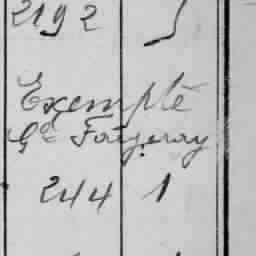 2192
Exempté
Gd Fougeray
244 1